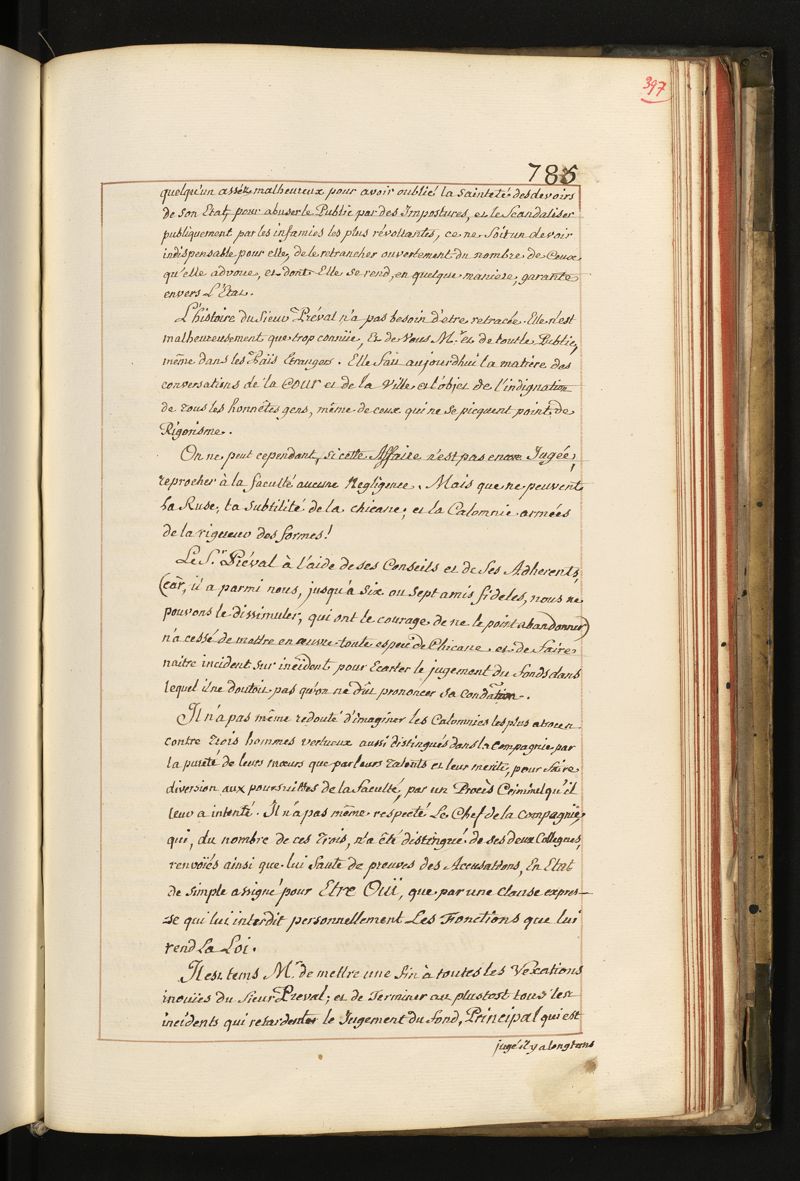 397
785
quelqu'un asséz malheureux pour avoir oublié la sainteté des devoirs
de son Etat, pour abuser le Public par des Impostures, et le Scandaliser
publiquement par les infamies les plus révoltantes, ce ne soit un devoir
indispensable pour elle, de le retrancher ouvertement du nombre de Ceux
qu'elle advoue, et dont Elle se rend, en quelque maniere, garante
envers L'Etat.
L'histoire du Sieur Préval n'a pas besoin d'etre retracée. Elle n'est
malheureusement que trop connüe, Et de Vous M.rs et de tout le Public,
même dans les Païs Etrangers. Elle fait aujourdhui la matière des
conversations de la Cour et de la Ville et l'objet de l'indignation
de tous les honnêtes gens, même de ceux qui ne se picquent point de
Rigorisme.
On ne peut cependant, si cette Affaire n'est pas encore Jugée,
reprocher à la faculté aucune Negligence. Mais que ne peuvent
La Ruse, la subtilité de la chicane, et la Calomnie armées
de la rigueur des formes!
Le S.r Préval à l'aide de ses Conseils et de Ses Adherents,
(car, il a parmi nous, jusqu'à Six ou Sept amis fideles, nous ne
pouvons le dissimuler, qui ont le courage de ne le point abandonner)
n'a cessé de mettre en œuvre toute espece de Chicane et de faire
naitre incident sur incident pour Ecarter le jugement du fonds dans
lequel il ne doutoit pas qu'on ne dût prononcer sa condãtion.
Il n'a pas même redouté d'imaginer les Calomnies les plus atroces
contre trois hommes vertueux aussi distingués dans la Compagnie par
la pureté de leurs mœurs que par leurs talents et leur merite, pour faire
diversion aux poursuittes de la faculté, par un Procès Criminel qu'il
leur a intenté. Il n'a pas même respecté Le Chef de la Compagnie,
qui, du nombre de ces trois, n'a été distingué de ses deux Collegues,
renvoïés ainsi que lui faute de preuves des Accusations, En Etat
de simple assigné pour Etre Ouï, que par une clause expres-
se qui lui interdit personnellement Les Fonctions que lui
rend La Loi.
Il est tems M.rs de mettre une fin à toutes les Vexations
inouies du Sieur Preval; et de Terminer au plustost tous les
incidents qui retardent le Jugement du fond, Principal qui est
jugé il y a longtems